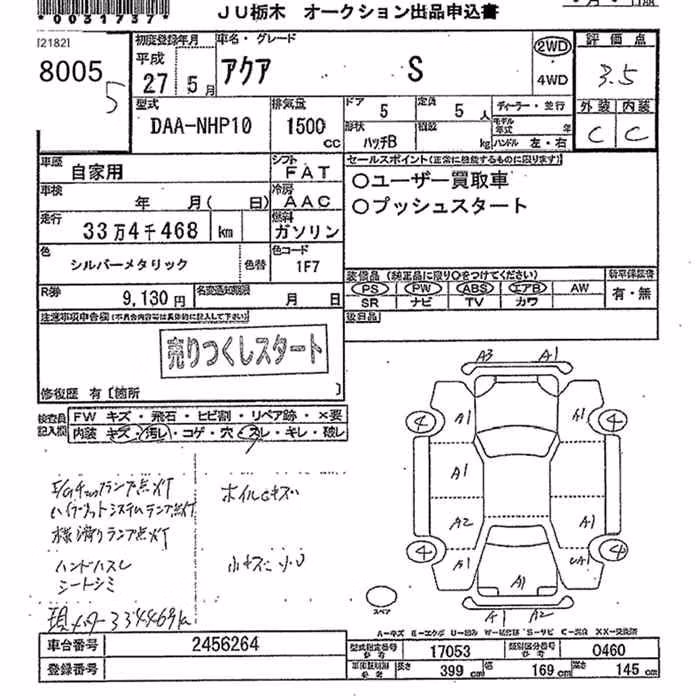 *0031737*
JU栃木 オークション出品申込書
[2182]
初度登録年月
車名・グレード
2WD
評価点
8005
平成
27 5月
アクア S
4WD
3.5
5
型式
排気量
ドア 5
定員 5人
ディーラー・並行
外装 内装
DAA-NHP10
1500cc
形状 ハッチB
kg
モデル年式 年
ハンドル 左・右
C C
車歴
自家用
シフト
FAT
セールスポイント(正常に機能するものに限ります)
車検
年 月( 日)
冷房
AAC
○ユーザー買取車
走行
33万4千468 km
燃料
ガソリン
○プッシュスタート
色
シルバーメタリック
色替
色コード
1F7
装備品(純正品に限り○をつけてください)
新車保証書
R券
9,130円
名変通知期限
月 日
PS PW ABS エアB AW
有・無
SR ナビ TV カワ
注意事項申告欄(不具合内容等は具体的に記入して下さい)
後日品
売りつくしスタート
修復歴 有〔箇所 〕
検査員記入欄
FW キズ・飛石・ヒビ割・リペア跡・×要
内装 キズ・汚レ・コゲ・穴・スレ・キレ・破レ
A3 A1
4 A1 A1 4
A1
A2 A1
4 A1 A1 4
A1
A1 A2
E/Gチェックランプ点灯
ホイルキズ
ハイブリットシステムランプ点灯
横滑りランプ点灯
ハンドルスレ
シートシミ
現メーター334469km
スペア
A-キズ E-エクボ U-凹み W-補修跡 S-サビ C-腐食 XX-交換済
車台番号
2456264
型式指定番号 参考
17053
類別区分番号 参考
0460
登録番号
車両仕様別 参考
長さ
399 cm
幅
169 cm
高さ
145 cm